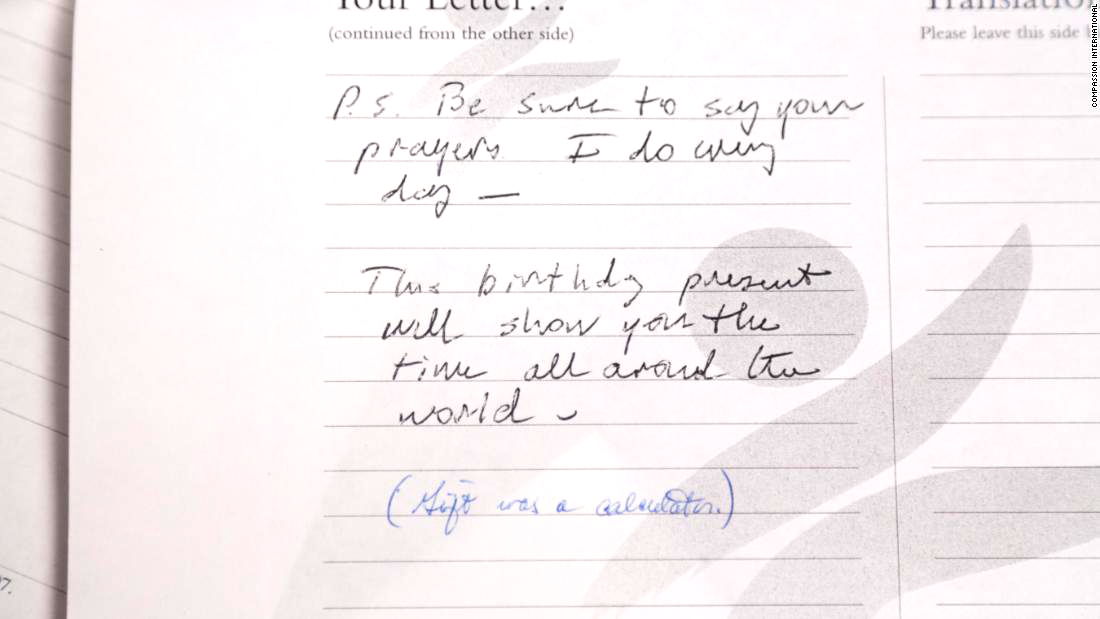 Your Letter...
(continued from the other side)
P.S. Be sure to say your
prayers. I do every
day —
This birthday present
will show you the
time all around the
world
(Gift was a calculator.)
Translation
Please leave this side
COMPASSION INTERNATIONAL